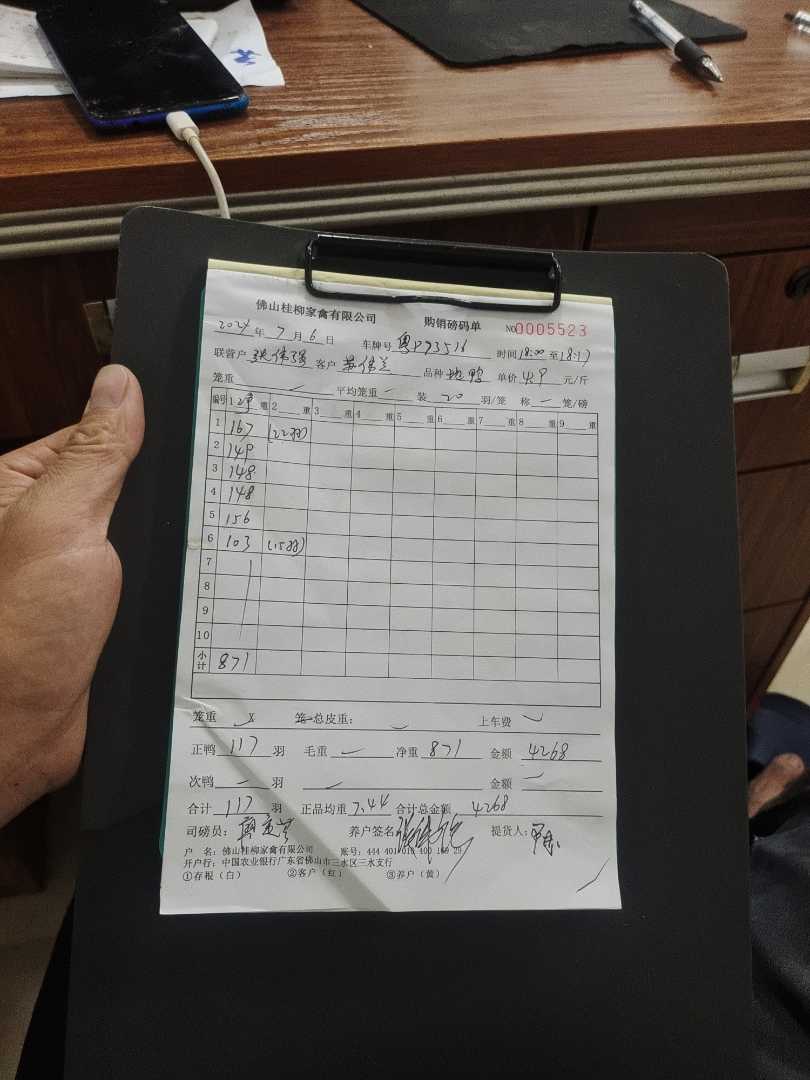 佛山桂柳家禽有限公司 购销磅码单 NO0005523
2024年7月6日 车牌号 粤P93516 时间18:00至18:17
联营户 张伟强 客户 品种 地鸭 单价 4.9 元/斤
笼重 平均笼重 装 20 羽/笼 称 一 笼/磅
编号 1 净 重 2 重 3 重 4 重 5 重 6 重 7 重 8 重 9 重
1 167 (22羽)
2 149
3 148
4 148
5 156
6 103 (15羽)
7
8
9
10
小计 871
笼重 x 笼总皮重： 上车费
正鸭 117 羽 毛重 净重 871 金额 4268
次鸭 羽 金额
合计 117 羽 正品均重 7.44 合计总金额 4268
司磅员： 养户签名 提货人：
户 名：佛山桂柳家禽有限公司 账号：444 401 010 400 169 29
开户行：中国农业银行广东省佛山市三水区三水支行
①存根（白） ②客户（红） ③养户（黄）